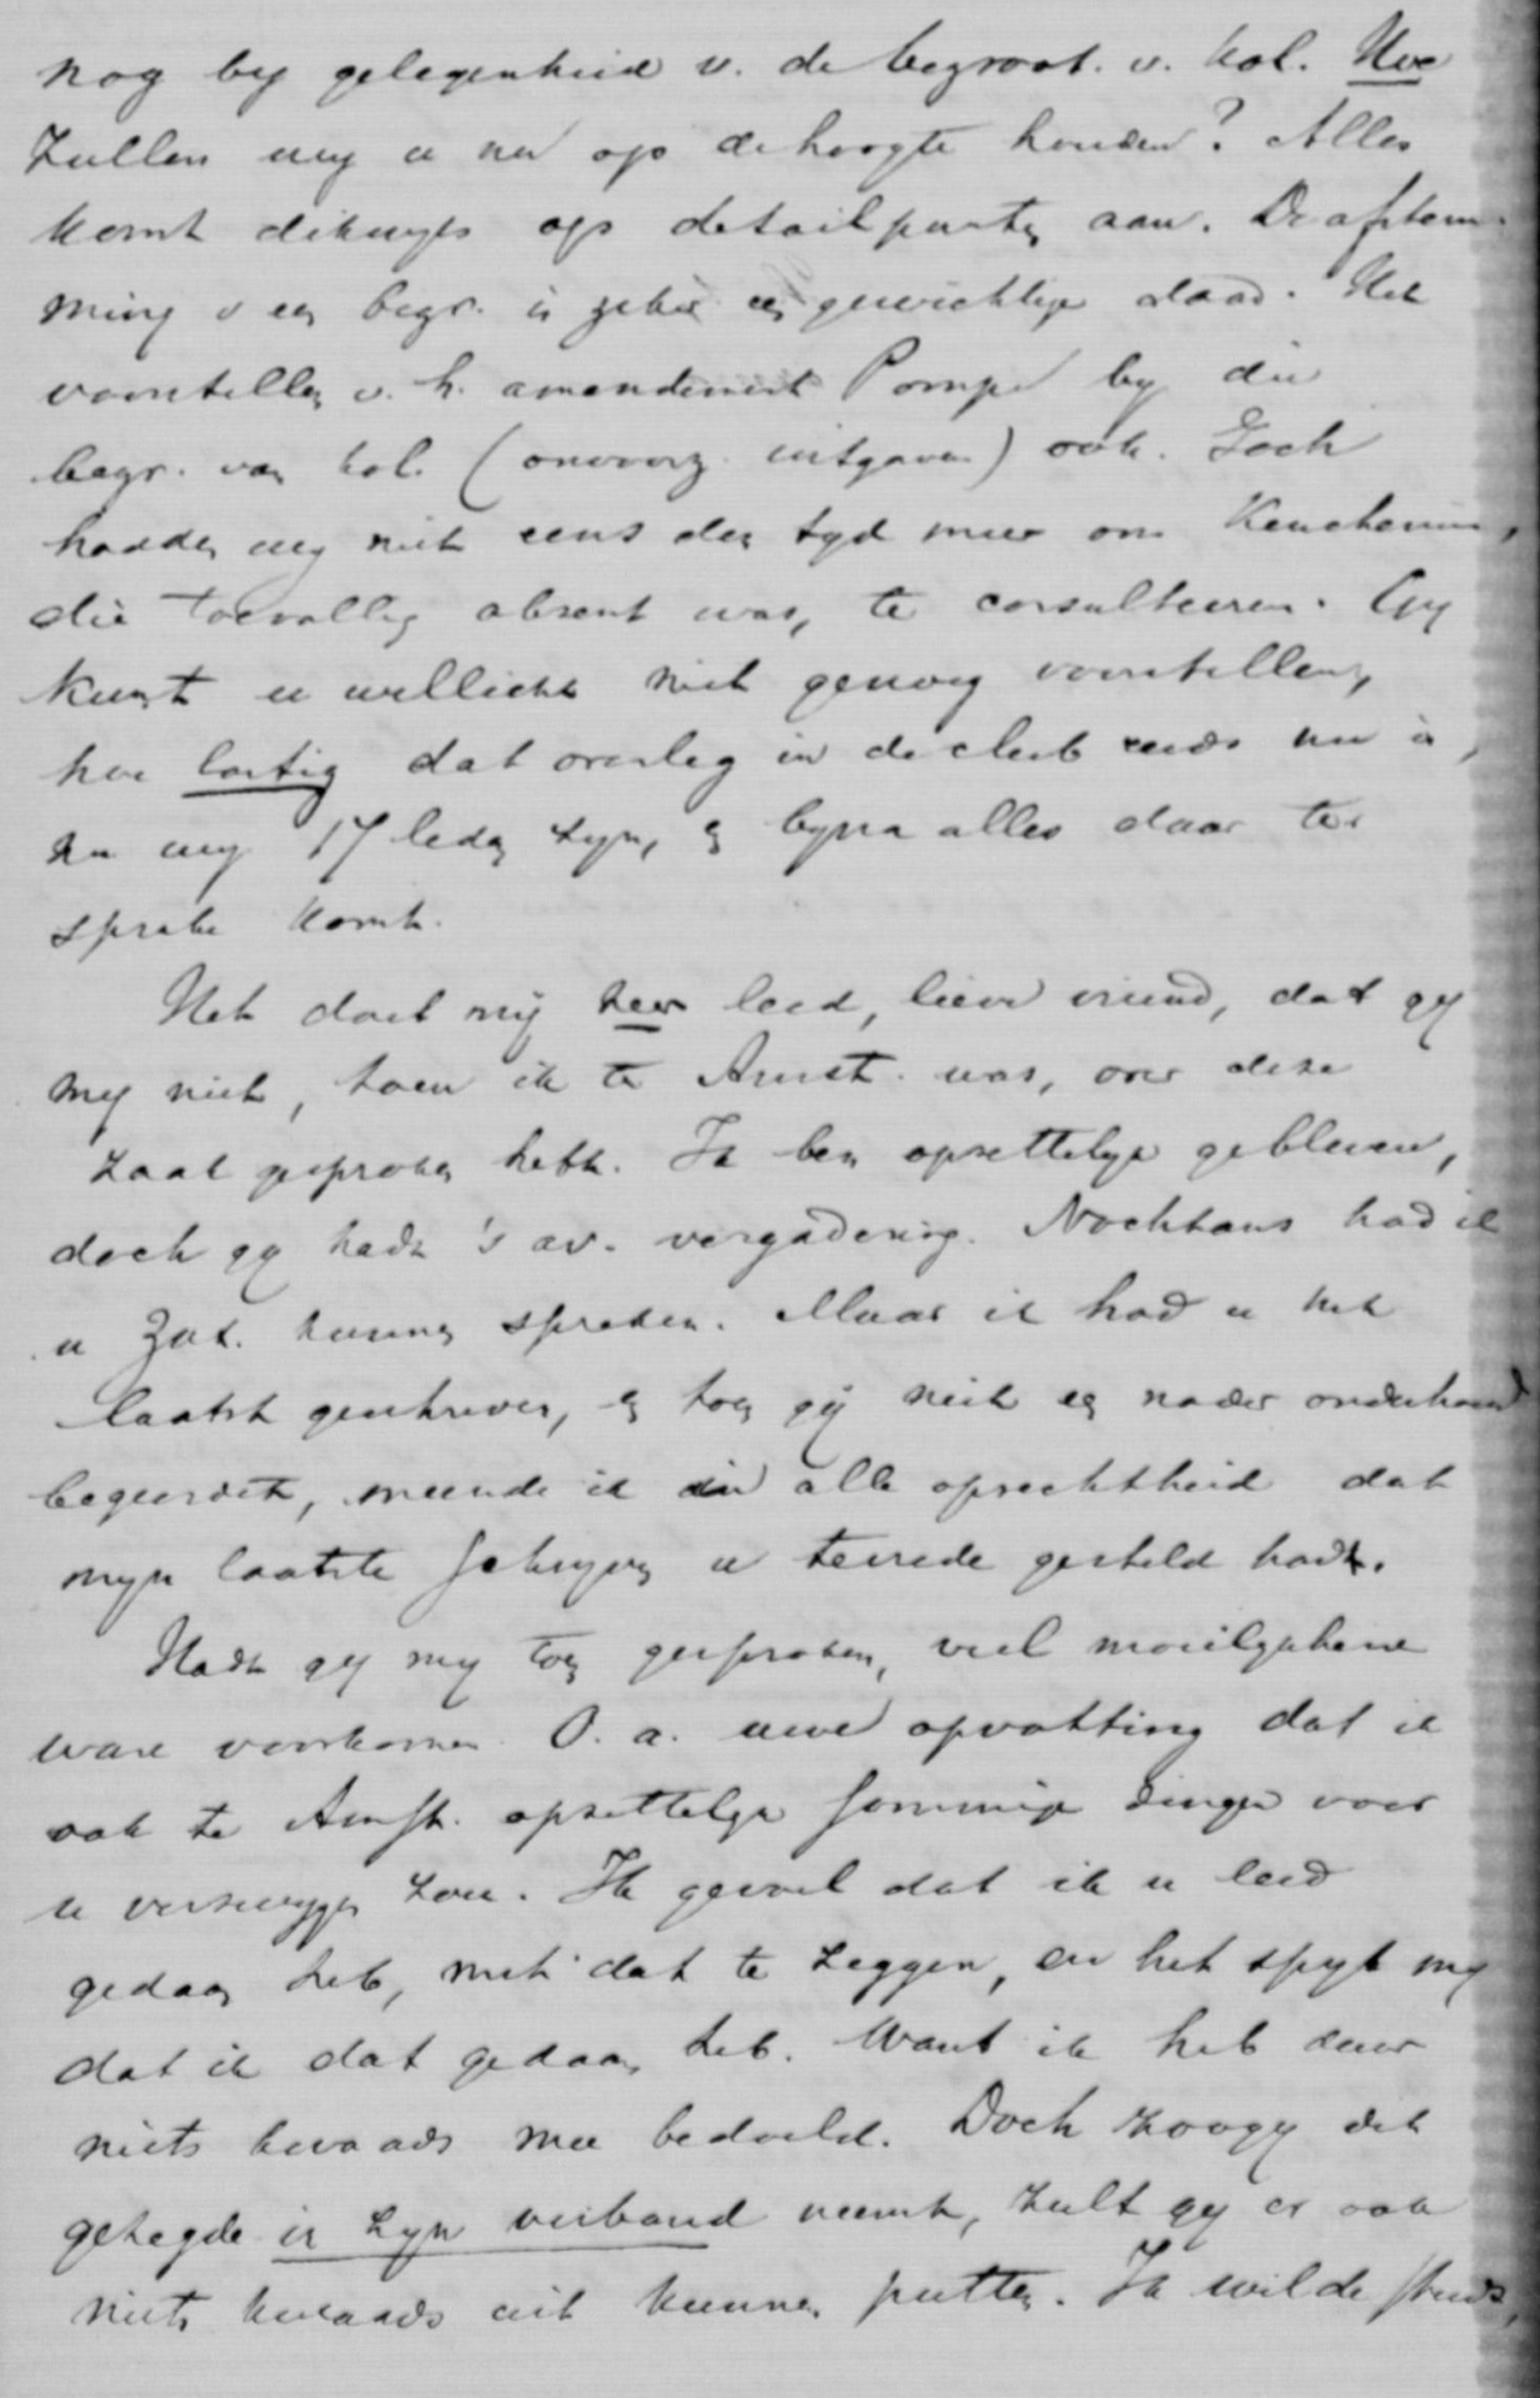 nog by gelegenheid v. de begroot. v. Kol. Hoe
zullen wy u nu op de hoogte houden? Alles
komt dikwyls op detailpunten aan. De afstem-
ming v een begr. is zeker een gewichtige daad. Het
voorstellen v. h. amendement Pompe by die
begr. van kol. (onvoorz. uitgaven) ook. Toch
hadden wy niet eens den tyd meer om Keuchenius,
die toevallig absent was, te consulteeren. Gy
kunt u wellicht niet genoeg voorstellen,
hoe lastig dat overleg in de club reeds nu is,
nu wy 17 leden zyn, en byna alles daar ter
sprake komt.
Het doet mij zeer leed, lieve vriend, dat gy
my niet, toen ik te Amst. was, over deze
zaak gesproken hebt. Ik ben opzettelyk gebleven,
doch gy hadt 's av. vergadering. Nochtans had ik
u Zat. kunnen spreken. Maar ik had u het
laatst geschreven, en toen gij niet een nader onderhoud
begeerdet, meende ik in alle oprechtheid dat
myn laatste schryven u tevrede gesteld hadt.
Hadt gy my toen gesproken, veel moeilykheid
ware voorkomen. O. a. uwe opvatting dat ik
ook te Amst. opzettelyk sommige dingen voor
u verzwygen zou. Ik gevoel dat ik u leed
gedaan heb, met dat te zeggen, en het spyt my
dat ik dat gedaan heb. Want ik heb daar
niets kwaads mee bedoeld. Doch zoo gy het
gezegde in zyn verband neemt, zult gy er ook
niets kwaads uit kunnen putten. Ik wilde steeds,